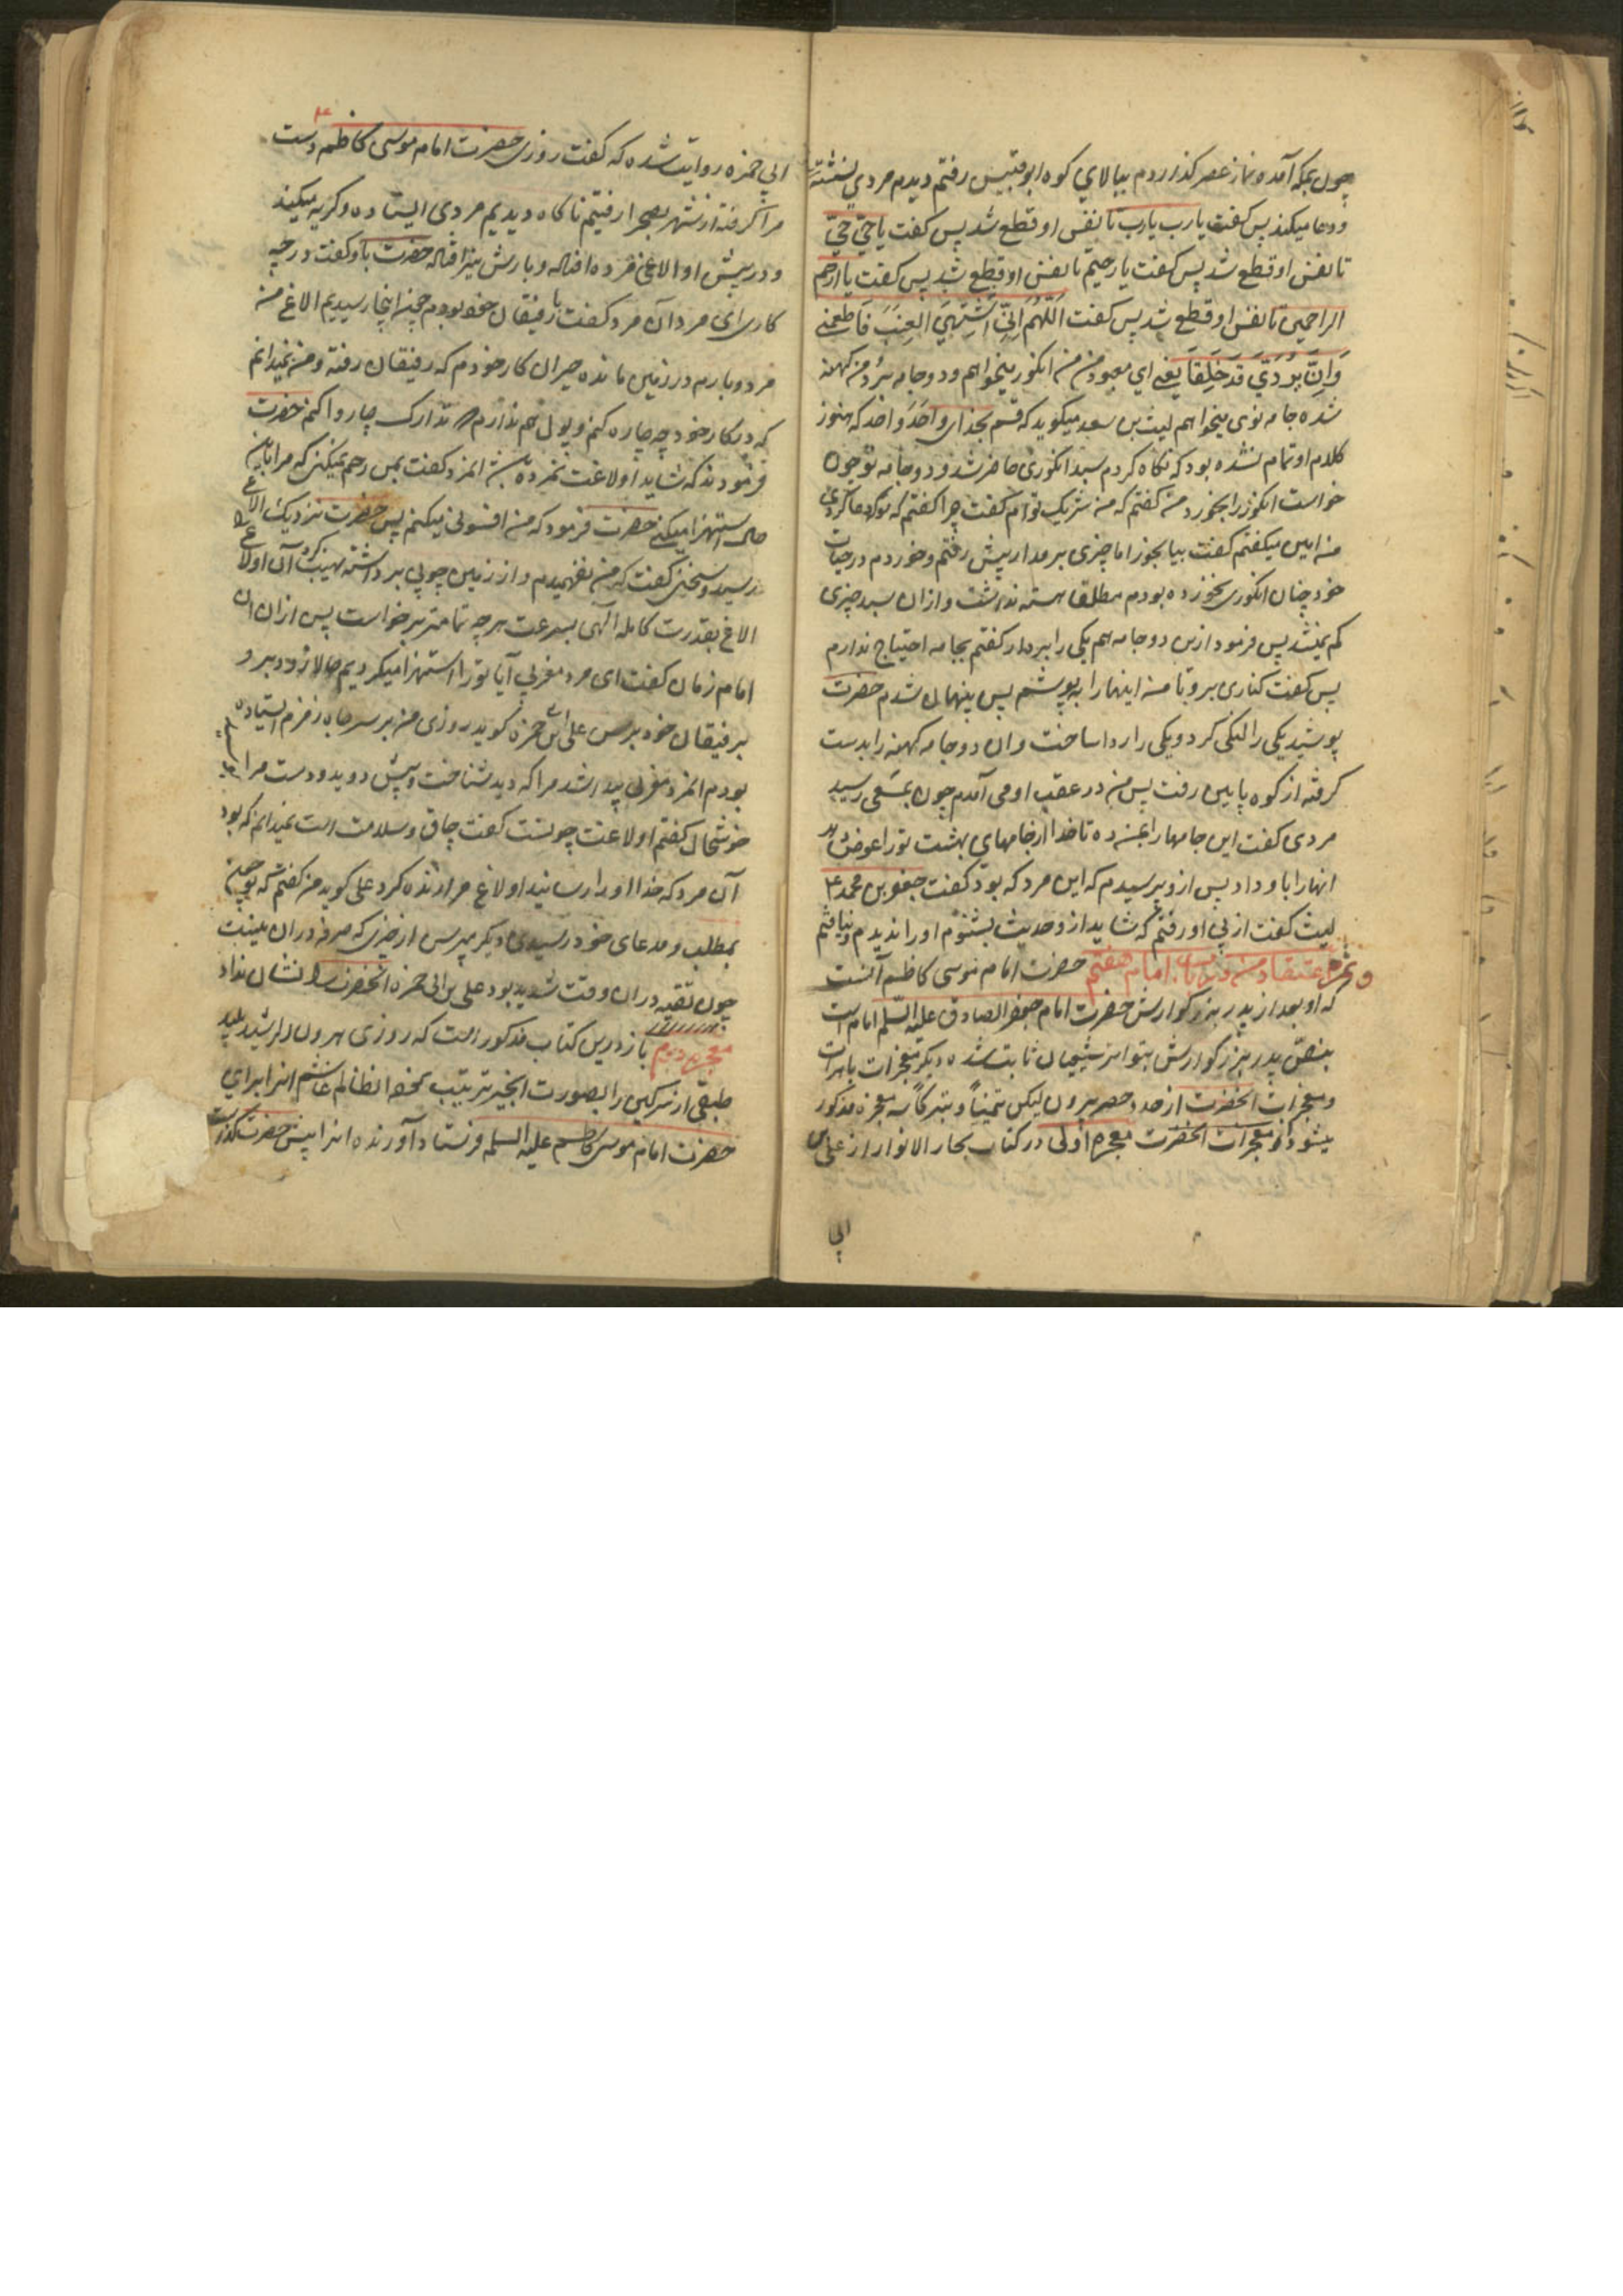 چون بمکه آمده و نماز عصر گذاردم ببالای کوه ابوقبیس رفتم دیدم مردی نشسته
و دعا میکند پس گفت یارب یارب تا نفس او قطع شد پس گفت یا حیّ حیّ
تا نفس او قطع شد پس گفت یا رحیم تا نفس او قطع شد پس گفت یا ارحم
الراحمین تا نفس او قطع شد پس گفت اَللّهُمَ اِنّی اَشتَهِی العِنَبَ فَاَطعِمنی
وَ اِنَّ بُردَیَّ قَد خَلِقَا یعنی ای معبود من من انگور میخواهم و دو جامه برد من کهنه
شده جامه نوی میخواهم لیث بن سعد میگوید که قسم بخدای واحد و احد که هنوز
کلام او تمام نشده بود که نگاه کردم سبد انگوری حاضر شد و دو جامه نو چون
خواست انگور را بخورد من گفتم که من شریک توام گفت چرا گفتم که تو که دعا کردی
من امین میگفتم گفت بیا بخور اما چیزی بر مدار پیش رفتم و خوردم در حیات
خود چنان انگوری نخورده بودم مطلقا هسته نداشت و از ان سبد چیزی
کم نمیشد پس فرمود ازین دو جامه هم یکی را بردار گفتم بجامه احتیاج ندارم
پس گفت کناری برو تا من اینها را بپوشم پس پنهان شدم حضرت
پوشید یکی را لنگی کرد و یکی را ردا ساخت و ان دو جامه کهنه را بدست
گرفته از کوه پایین رفت پس من در عقب او می آمدم چون بمسعی رسید
مردی گفت این جامها را بمن ده تا خدا از جامهای بهشت تو را عوض دهد
انها را باو داد پس از و پرسیدم که این مرد که بود گفت جعفر بن محمد ع
لیث گفت از پی او رفتم که شاید از و حدیث بشنوم او را ندیدم و نیافتم
اعتقاد من در باب امام هفتم حضرت امام موسی کاظم آنست
که او بعد از پدر بزرگوارش حضرت امام جعفر الصادق علیه السلم امام است
بنص پدر بزرگوارش بتواتر شیعیان ثابت شده و دیگر معجزات باهرات
و معجزات انحضرت از حد و حصر بیرون لیکن تیمناً و تبرکاً سه معجزه مذکور
میشود از معجزات انحضرت معجزه اولی در کتاب بحار الانوار از علی بن
ابی
ابی حمزه روایت شده که گفت روزی حضرت امام موسی کاظم ع دست
مرا گرفته از شهر بصحرا رفتیم ناگاه دیدیم مردی ایستاده و گریه میکند
و در پیش او الاغی مرده افتاده و بارش نیز افتاده حضرت باو گفت در چه
کاری ای مرد آن مرد گفت با رفیقان حج بودم چون اینجا رسیدیم الاغ من
مرد و بارم در زمین مانده حیران کار خودم که رفیقان رفته و من نمیدانم
که در کار خود چه چاره کنم و پول هم ندارم تدارک چاروا کنم حضرت
فرمودند که شاید اولاغت نمرده باشد انمرد گفت بمن رحم نمیکنی که مرا باین
حال استهزا میکنی حضرت فرمود که من افسونی میکنم پس حضرت نزدیک الاغ
رسید و سخنی گفت که من نفهمیدم و از زمین چوبی برداشته نهیب کرد آن اولاغ
الاغ بقدرت کامله الهی بسرعت هر چه تمامتر برخواست پس از ان ان
امام زمان گفت ای مرد مغربی آیا تو را استهزا میکردیم حالا زود برو
برفیقان خود برس علی ابن حمزه گوید روزی من بر سر چاه زمزم ایستاده
بودم انمرد مغربی پیدا شد مرا که دید شناخت و پیش دوید و دست مرا
خوشحال گفتم اولاغت چونست گفت چاق و سلامت است نمیدانم که بود
آن مرد که خدا او را رسانید اولاغ مرا زنده کرد علی گوید من گفتم که تو چون
بمطلب و مدعای خود رسیدی دیگر مپرس از چیزی که صرفه دران نیست
چون تقیه دران وقت شدید بود علی بن ابی حمزه انحضرت را نشان نداد
معجزه دویم باز درین کتاب مذکور است که روزی هرون الرشید پلید
طبقی از سرگین را بصورت انجیر ترتیب محض انظالم غاشم انرا برای
حضرت امام موسی کاظم علیه السلم فرستاد آورنده انرا پیش حضرت گذاشت